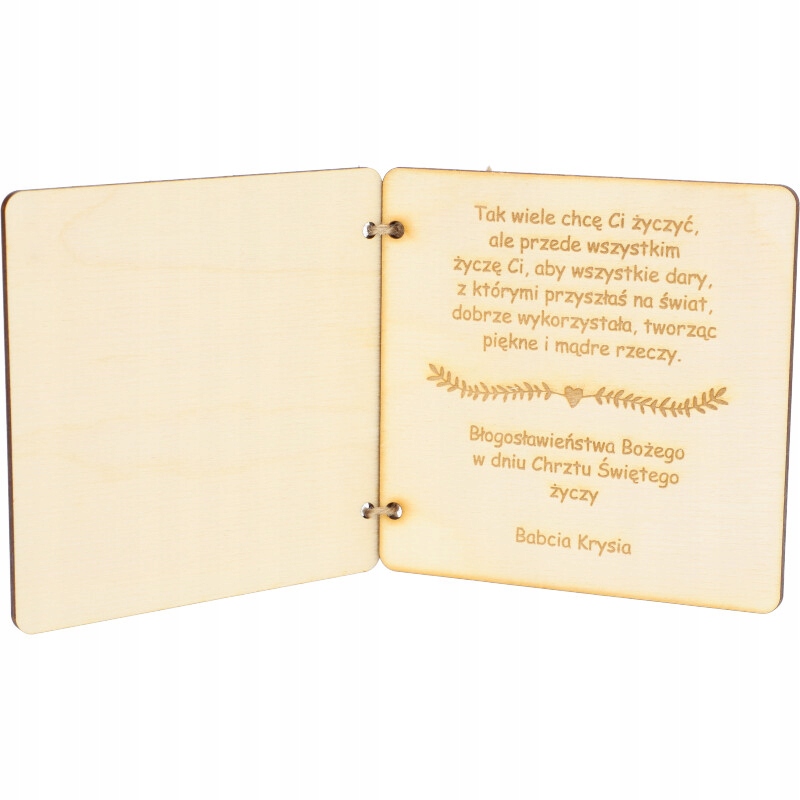 Tak wiele chcę Ci życzyć,
ale przede wszystkim
życzę Ci, aby wszystkie dary,
z którymi przyszłaś na świat,
dobrze wykorzystała, tworząc
piękne i mądre rzeczy.
Błogosławieństwa Bożego
w dniu Chrztu Świętego
życzy
Babcia Krysia